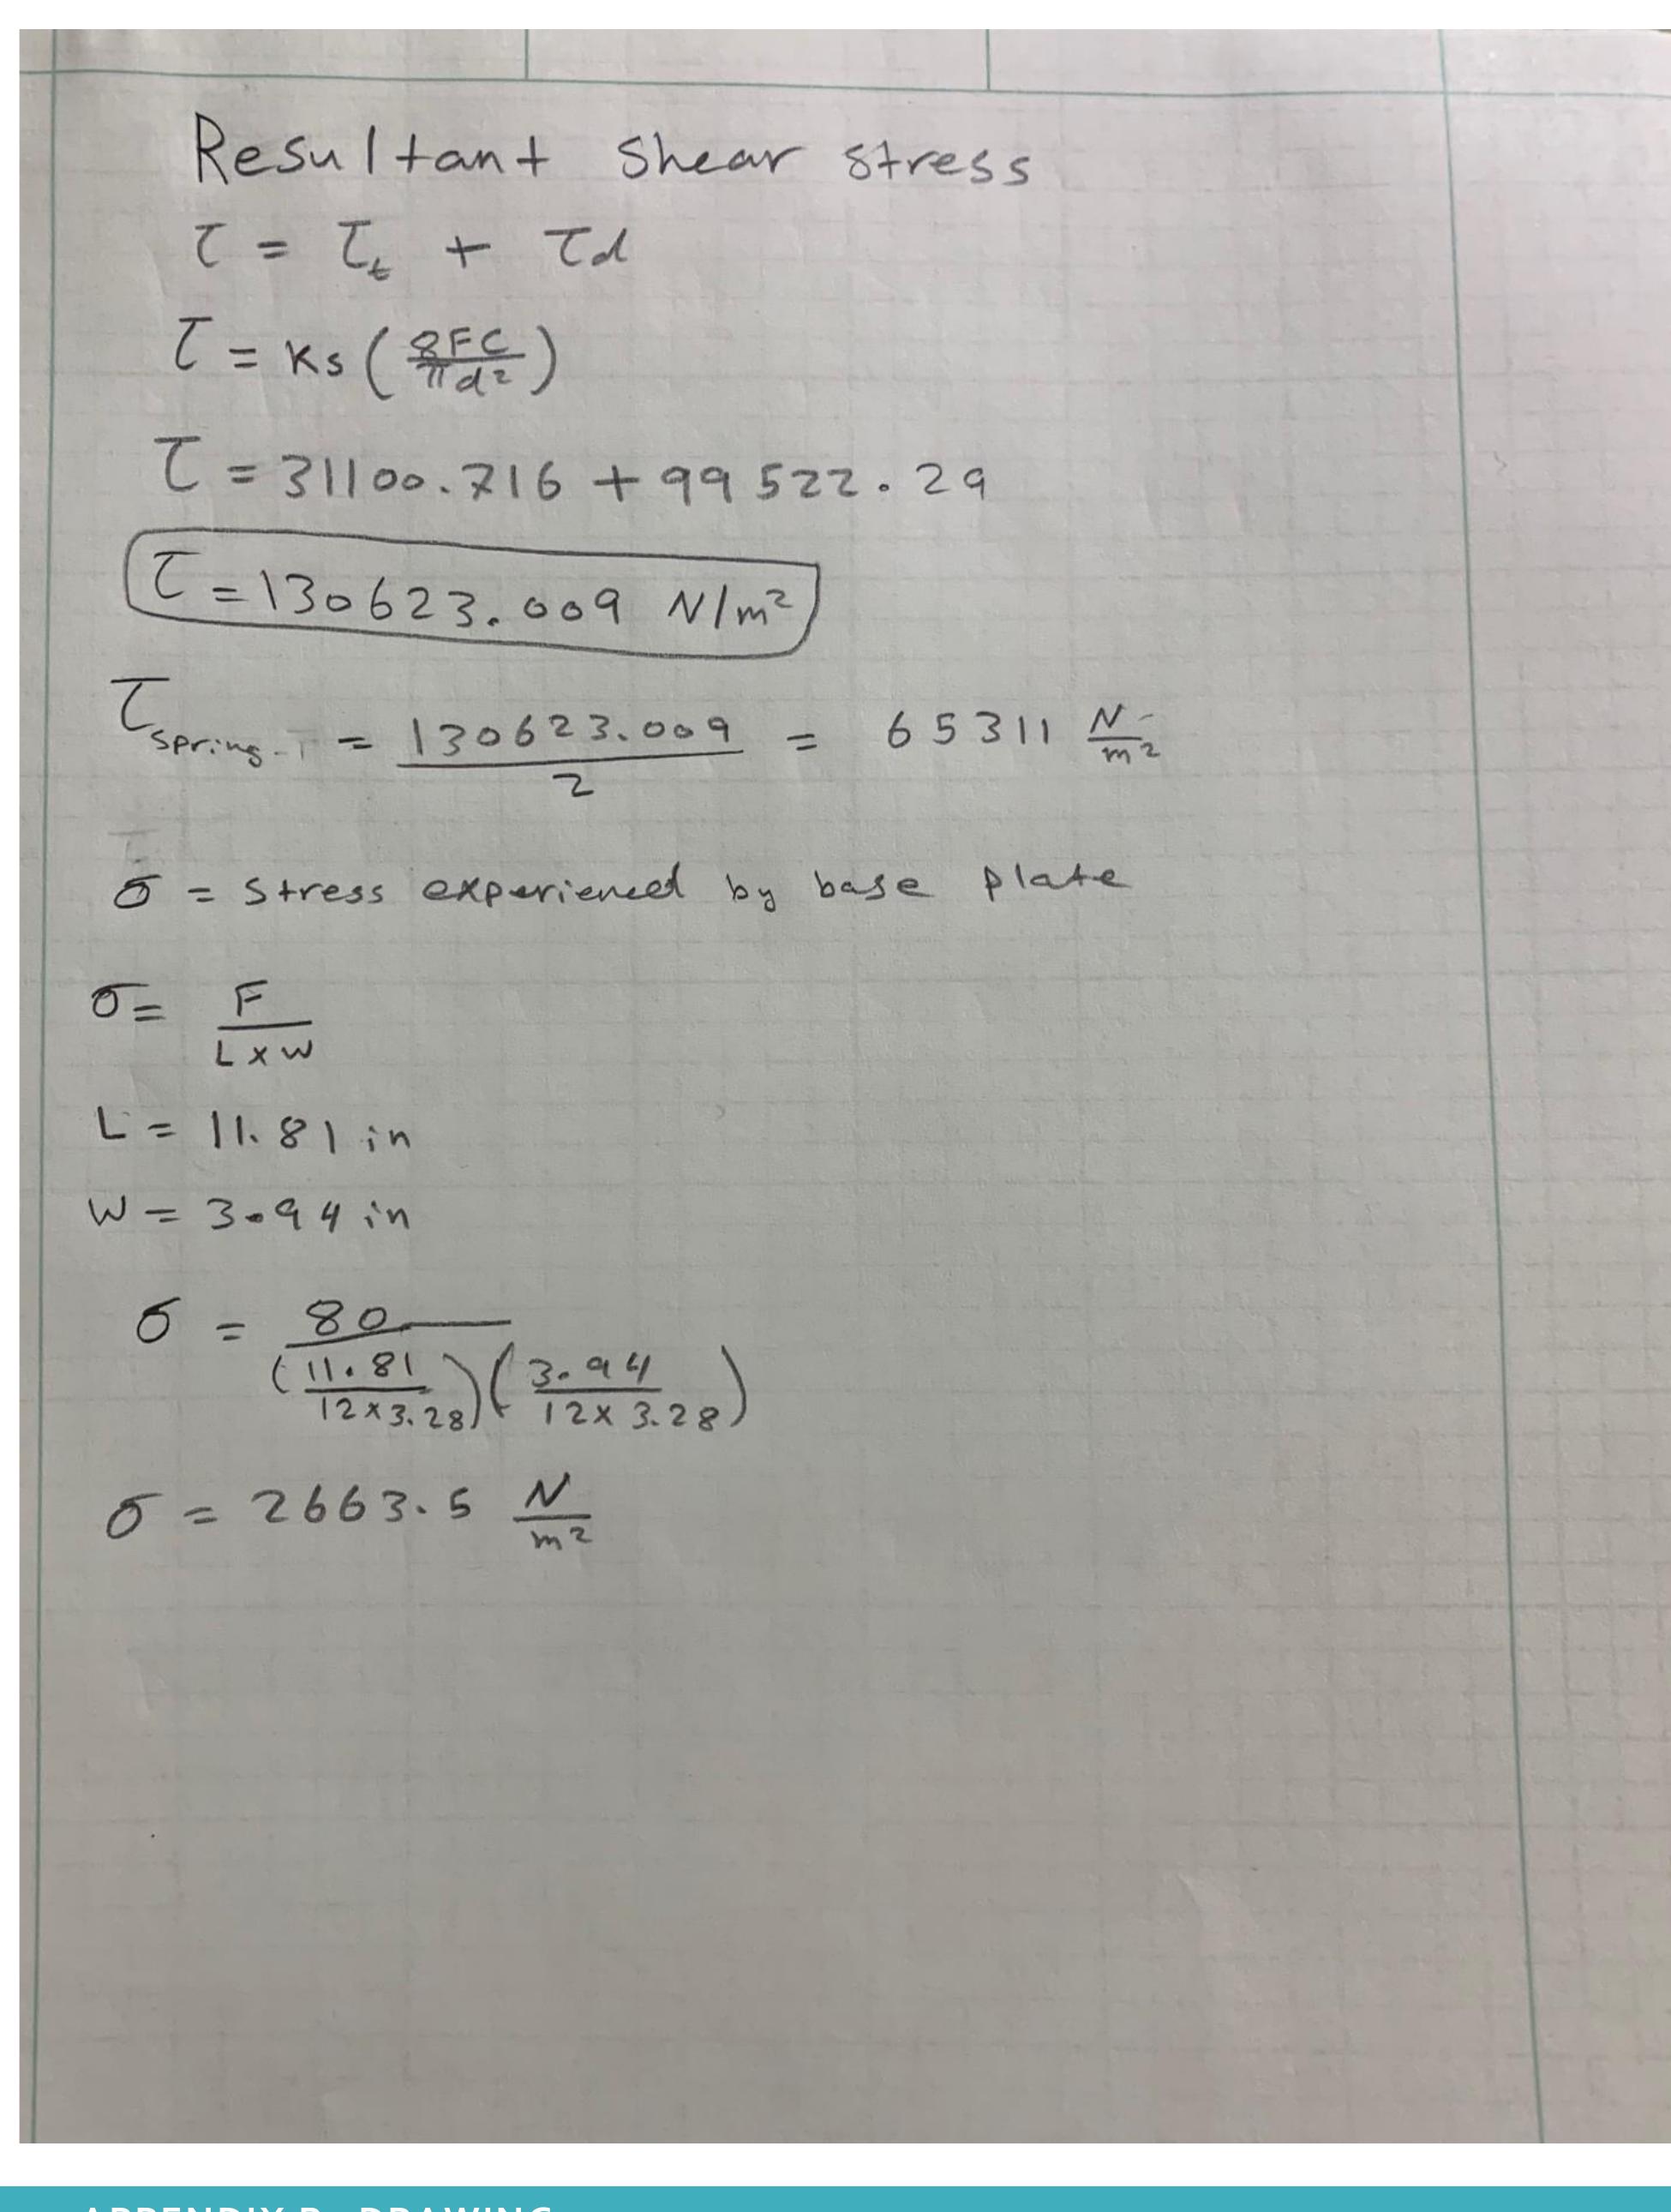 Resultant shear stress
τ = τt + τd
τ = Ks (8FC/πd²)
τ = 31100.716 + 99522.29
τ = 130623.009 N/m²
τspring-T = 130623.009/2 = 65311 N/m²
σ = stress experienced by base plate
σ = F/(L x W)
L = 11.81 in
W = 3.94 in
σ = 80/((11.81/12x3.28)(3.94/12x3.28))
σ = 2663.5 N/m²
APPENDIX B- DRAWING